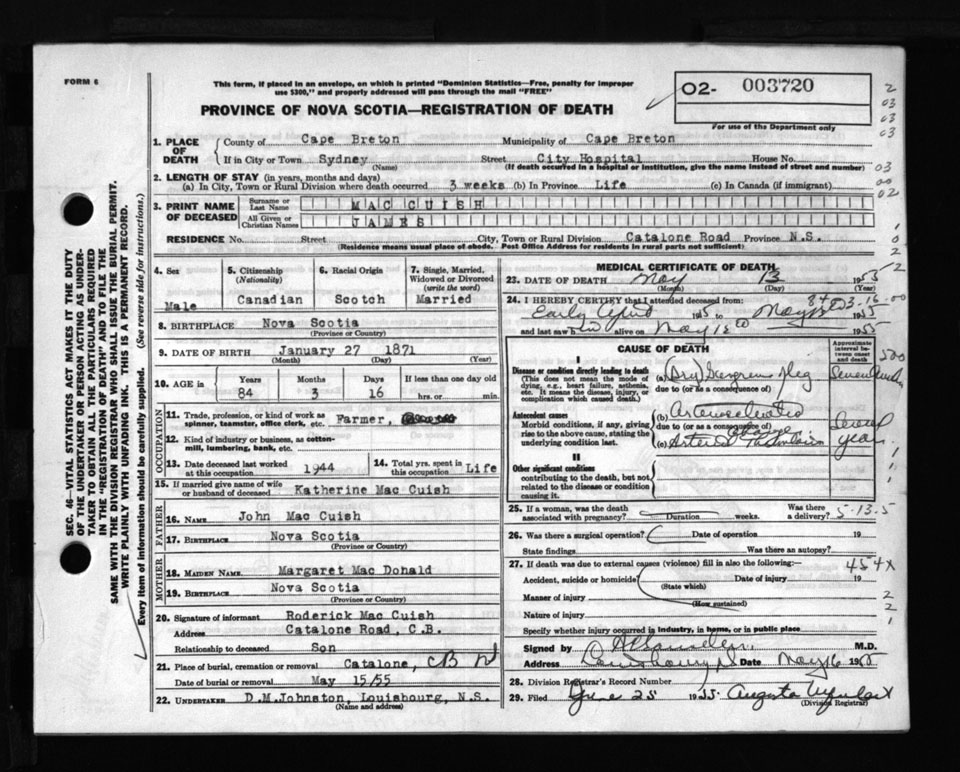 FORM 6
This form, if placed in an envelope, on which is printed "Dominion Statistics—Free, penalty for improper
use $300," and properly addressed will pass through the mail "FREE"
PROVINCE OF NOVA SCOTIA—REGISTRATION OF DEATH
O2- 003720
For use of the Department only
1. PLACE OF DEATH
County of Cape Breton Municipality of Cape Breton
If in City or Town Sydney Street City Hospital House No.
(Name) (If death occurred in a hospital or institution, give the name instead of street and number)
2. LENGTH OF STAY (in years, months and days)
(a) In City, Town or Rural Division where death occurred 3 weeks (b) In Province Life (c) In Canada (if immigrant)
3. PRINT NAME OF DECEASED
Surname or Last Name MAC CUISH
All Given or Christian Names JAMES
RESIDENCE No. Street City, Town or Rural Division Catalone Road Province N.S.
(Residence means usual place of abode. Post Office Address for residents in rural parts not sufficient)
4. Sex Male
5. Citizenship (Nationality) Canadian
6. Racial Origin Scotch
7. Single, Married, Widowed or Divorced (write the word) Married
8. BIRTHPLACE Nova Scotia
(Province or Country)
9. DATE OF BIRTH January 27 1871
(Month) (Day) (Year)
10. AGE in Years 84 Months 3 Days 16 If less than one day old hrs. or min.
OCCUPATION
11. Trade, profession, or kind of work as spinner, teamster, office clerk, etc. Farmer,
12. Kind of industry or business, as cotton-mill, lumbering, bank, etc.
13. Date deceased last worked at this occupation 1944
14. Total yrs. spent in this occupation Life
15. If married give name of wife or husband of deceased Katherine Mac Cuish
FATHER
16. NAME John Mac Cuish
17. BIRTHPLACE Nova Scotia
(Province or Country)
MOTHER
18. MAIDEN NAME Margaret Mac Donald
19. BIRTHPLACE Nova Scotia
(Province or Country)
20. Signature of informant Roderick Mac Cuish
Address Catalone Road, C.B.
Relationship to deceased Son
21. Place of burial, cremation or removal Catalone, CB
Date of burial or removal May 15/55
22. UNDERTAKER D.M.Johnston, Louisbourg, N.S.
(Name and address)
MEDICAL CERTIFICATE OF DEATH
23. DATE OF DEATH May 13 1955
(Month) (Day)
24. I HEREBY CERTIFY that I attended deceased from:
Early 19 to May 1955
and last saw h alive on May 1955
CAUSE OF DEATH
Approximate interval between onset and death
I
Disease or condition directly leading to death
(This does not mean the mode of dying, e.g., heart failure, asthenia, etc. It means the disease, injury, or complication which caused death.)
(a) Dry
due to (or as a consequence of)
Antecedent causes
Morbid conditions, if any, giving rise to the above cause, stating the underlying condition last.
(b)
due to (or as a consequence of)
(c)
II
Other significant conditions
contributing to the death, but not related to the disease or condition causing it.
25. If a woman, was the death associated with pregnancy? Duration weeks. Was there a delivery?
26. Was there a surgical operation? Date of operation 19
State findings Was there an autopsy?
27. If death was due to external causes (violence) fill in also the following:—
Accident, suicide or homicide? Date of injury 19
(State which)
Manner of injury
(How sustained)
Nature of injury
Specify whether injury occurred in industry, in home, or in public place
Signed by M.D.
Address Date May 16 1955
28. Division Registrar's Record Number
29. Filed June 25 1955 Augusta
(Division Registrar)
5-13-5
454X
SEC. 46—VITAL STATISTICS ACT MAKES IT THE DUTY
OF THE UNDERTAKER OR PERSON ACTING AS UNDER-
TAKER TO OBTAIN ALL THE PARTICULARS REQUIRED
IN THE "REGISTRATION OF DEATH" AND TO FILE THE
SAME WITH THE DIVISION REGISTRAR WHO SHALL ISSUE THE BURIAL PERMIT.
WRITE PLAINLY WITH UNFADING INK. THIS IS A PERMANENT RECORD.
Every item of information should be carefully supplied. (See reverse side for instructions.)